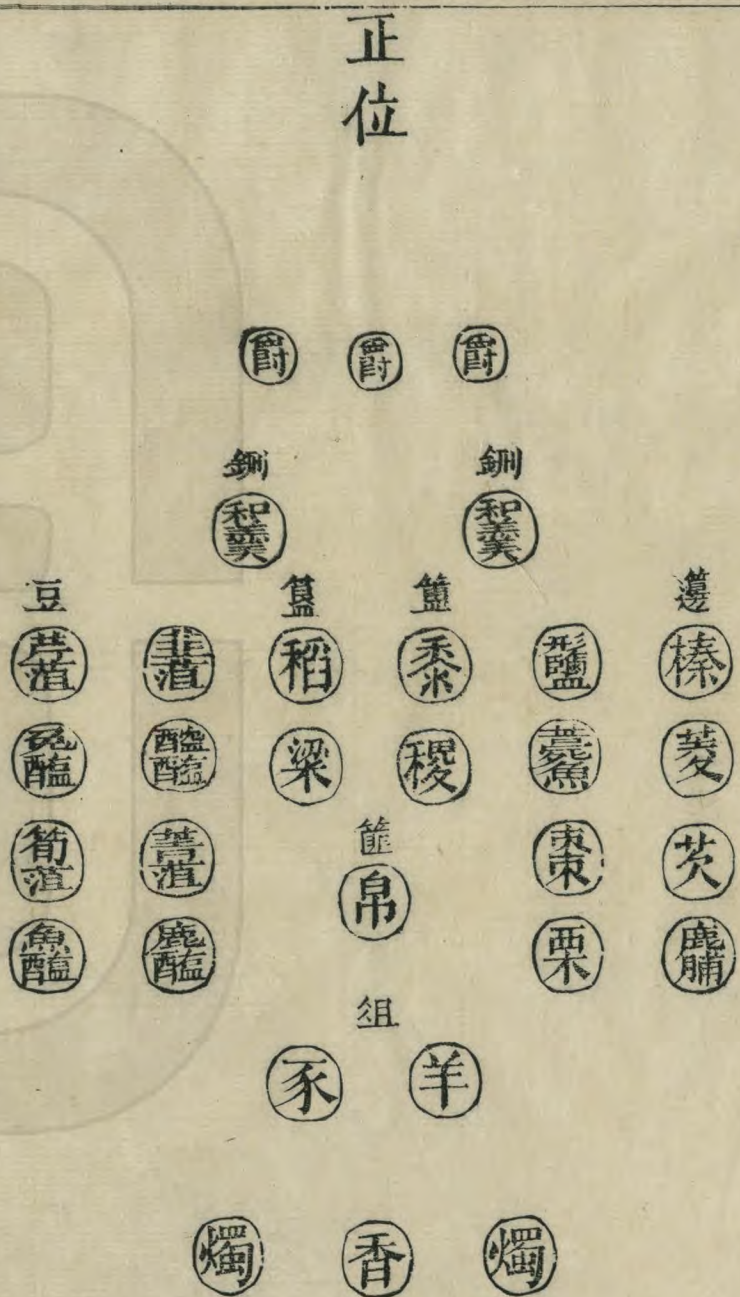 正位
爵 爵 爵
鉶 鉶
和羹 和羹
豆 簋 簠 籩
芹菹 韭菹 稻 黍 形鹽 榛
兔醢 醓醢 粱 稷 薧魚 菱
篚
筍菹 菁菹 帛 棗 芡
魚醢 鹿醢 栗 鹿脯
俎
豕 羊
燭 香 燭